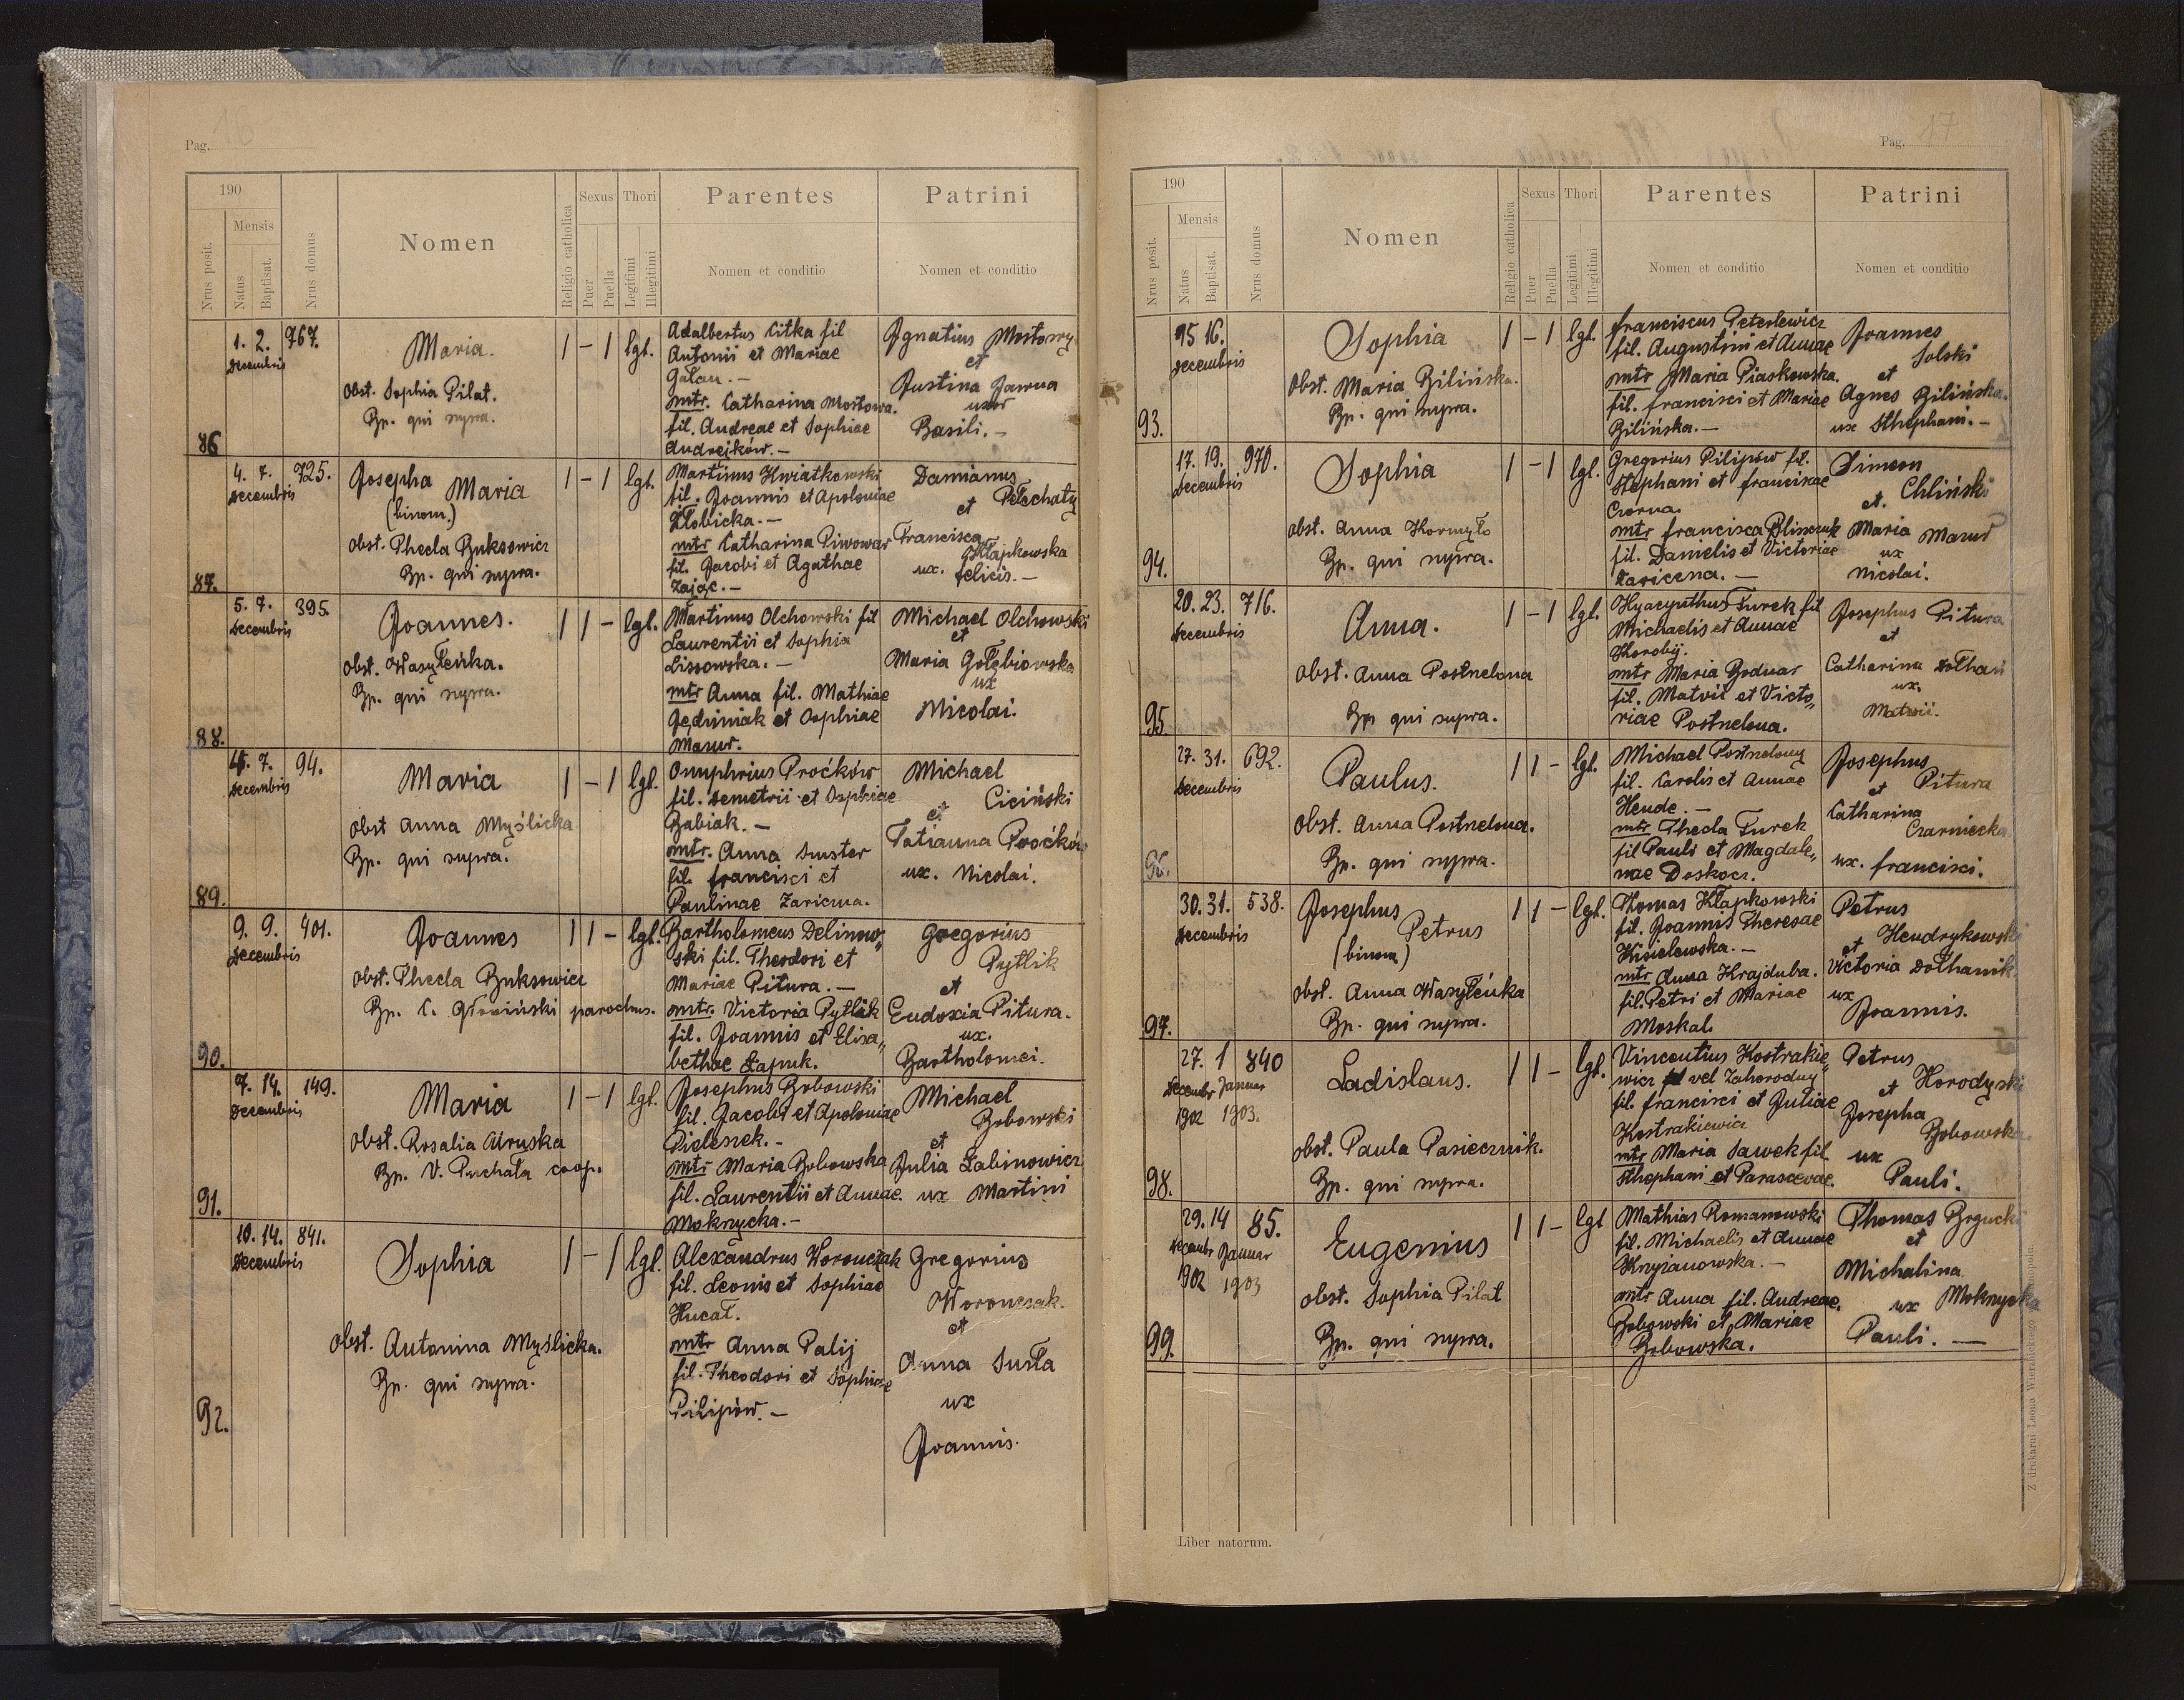 Pag. 16
190
Nrus posit.
Mensis
Natus
Baptisat.
Nrus domus
Nomen
Religio catholica
Sexus
Puer
Puella
Thori
Legitimi
Illegitimi
Parentes
Nomen et conditio
Patrini
Nomen et conditio
86
1. 2. 767.
Decembris
Maria.
obst. Sophia Pilat.
Bp. qui supra.
1 - 1 lgl.
Adalbertus Citka fil
Antonii et Mariae
Galan. -
mtr. Catharina Mostowa.
fil. Andreae et Sophiae
Andrejków. -
Ignatius Mostowy
et
Justina Jawna
uxor
Basili. -
87.
4. 7. 725.
Decembris
Josepha
Maria
(binom.)
obst. Thecla Buksowicz
Bp. qui supra.
1 - 1 lgl.
Martinus Kwiatkowski
fil. Joannis et Apoloniae
Kłobicka. -
mtr Catharina Piwowar
fil. Jacobi et Agathae
Zając. -
Damianus
Pełechaty
et
Francisca
Kłapkowska
ux. felicis. -
88.
5. 7. 395.
Decembris
Joannes.
obst. Wasyleńka.
Bp. qui supra.
1 1 - lgl.
Martinus Olchowski fil
Laurentii et Sophia
Lissowska. -
mtr Anna fil. Mathiae
Jędriniak et Sophiae
Mazur.
Michael Olchowski
et
Maria Gołębiowska
ux
Nicolai.
89.
4. 7. 94.
Decembris
Maria
obst Anna Myślicka
Bp. qui supra.
1 - 1 lgl.
Onuphrius Proćków
fil. Demetrii et Sophiae
Babiak. -
mtr. Anna Suster
fil. francisci et
Paulinae Zariczna.
Michael
Ciciński
et
Tatianna Proćków
ux. Nicolai.
90.
9. 9. 401.
Decembris
Joannes
obst. Thecla Buksowicz
Bp. C. parochus.
1 1 - lgl.
Bartholomeus Delinow„
ski fil. Theodori et
Mariae Pitura. -
mtr. Victoria Pytlik
fil. Joannis et Elisa„
bethae Łapuk.
Gregorius
Pytlik
et
Eudoxia Pitura.
ux.
Bartholomei.
91.
7. 14. 149.
Decembris
Maria
obst. Rosalia Uruska
Bp. V. Puchała coop.
1 - 1 lgl.
Josephus Bobowski
fil. Jacobi et Apoloniae
Pieleszek. -
mtr Maria Bobowska
fil. Laurentii et Annae
Mokrzycka. -
Michael
Bobowski
et
Julia Łabinowicz
ux Martini
92.
10. 14. 841.
Decembris
Sophia
obst. Antonina Myślicka.
Bp. qui supra.
1 - 1 lgl.
Alexandrus Woronczak
fil. Leonis et Sophiae
Hucał.
mtr Anna Palij
fil. Theodori et Sophiae
Pilipów. -
Gregorius
Woronczak.
et
Anna Susła
ux
Joannis.
Pag. 17
190
Nrus posit.
Mensis
Natus
Baptisat.
Nrus domus
Nomen
Religio catholica
Sexus
Puer
Puella
Thori
Legitimi
Illegitimi
Parentes
Nomen et conditio
Patrini
Nomen et conditio
93.
15 16.
Decembris
Sophia
obst. Maria Bilińska.
Bp. qui supra.
1 - 1 lgl.
franciscus Peterlewicz
fil. Augustini et Annae
mtr Maria Piaskowska.
fil. francisci et Mariae
Bilińska. -
Joannes
Solski
et
Agnes Bilińska.
ux Sthephani. -
94.
17. 19. 970.
Decembris
Sophia
obst. Anna Kormyło
Bp. qui supra.
1 - 1 lgl.
Gregorius Pilipów fil.
Stephani et franciscae
Czorna.
mtr francisca Bliszczuk
fil. Danielis et Victoriae
Zariczna. -
Simeon
Chliński
et.
Maria Mazur
ux
Nicolai.
95.
20. 23. 716.
Decembris
Anna.
obst. Anna Postnelona
Bp qui supra.
1 - 1 lgl.
Hyacynthus Turek fil
Michaelis et Annae
Korobij.
mtr Maria Bodnar
fil. Matvii et Victo„
riae Postnelona.
Josephus Pitura
et
Catharina Dołhań
ux.
Matwii.
96.
27. 31. 692.
Decembris
Paulus.
obst. Anna Postnelona.
Bp. qui supra.
1 1 - lgl.
Michael Postnelony
fil. Carolis et Annae
Heude. -
mtr Thecla Turek
fil Pauli et Magdale„
nae Doskocz.
Josephus
Pitura
et
Catharina
Czarniecka
ux. francisci.
97.
30. 31. 538.
Decembris
Josephus
Petrus
(binom)
obst. Anna Wasyleńka
Bp. qui supra.
1 1 - lgl.
Thomas Kłapkowski
fil. Joannis Theresae
Kisielewska. -
mtr Anna Krajduba.
fil. Petri et Mariae
Moskal.
Petrus
Hendrykowski
et
Victoria Dołhanik
ux
Joannis.
98.
27. 1 840
Decembr Januar
1902 1903.
Ladislaus.
obst. Paula Pasiecznik.
Bp. qui supra.
1 1 - lgl.
Vincentius Kostrakie„
wicz vel Zahorodny
fil. francisci et Juliae
Kostrakiewicz
mtr Maria Sawek fil
Sthephani et Parascevae.
Petrus
et Horodyski
Josepha
Bobowska.
ux
Pauli.
99.
29. 14 85.
Decembr Januar
1902 1903
Eugenius
obst. Sophia Pilat
Bp. qui supra.
1 1 - lgl
Mathias Romanowski
fil. Michaelis et Annae
Krzyżanowska. -
mtr Anna fil. Andreae.
Bobowski et Mariae
Bobowska.
Thomas Brgucki
et
Michalina
ux Mokrzycka
Pauli. -
Liber natorum.
Z drukarni Leona Wierzbickiego w Tarnopolu.